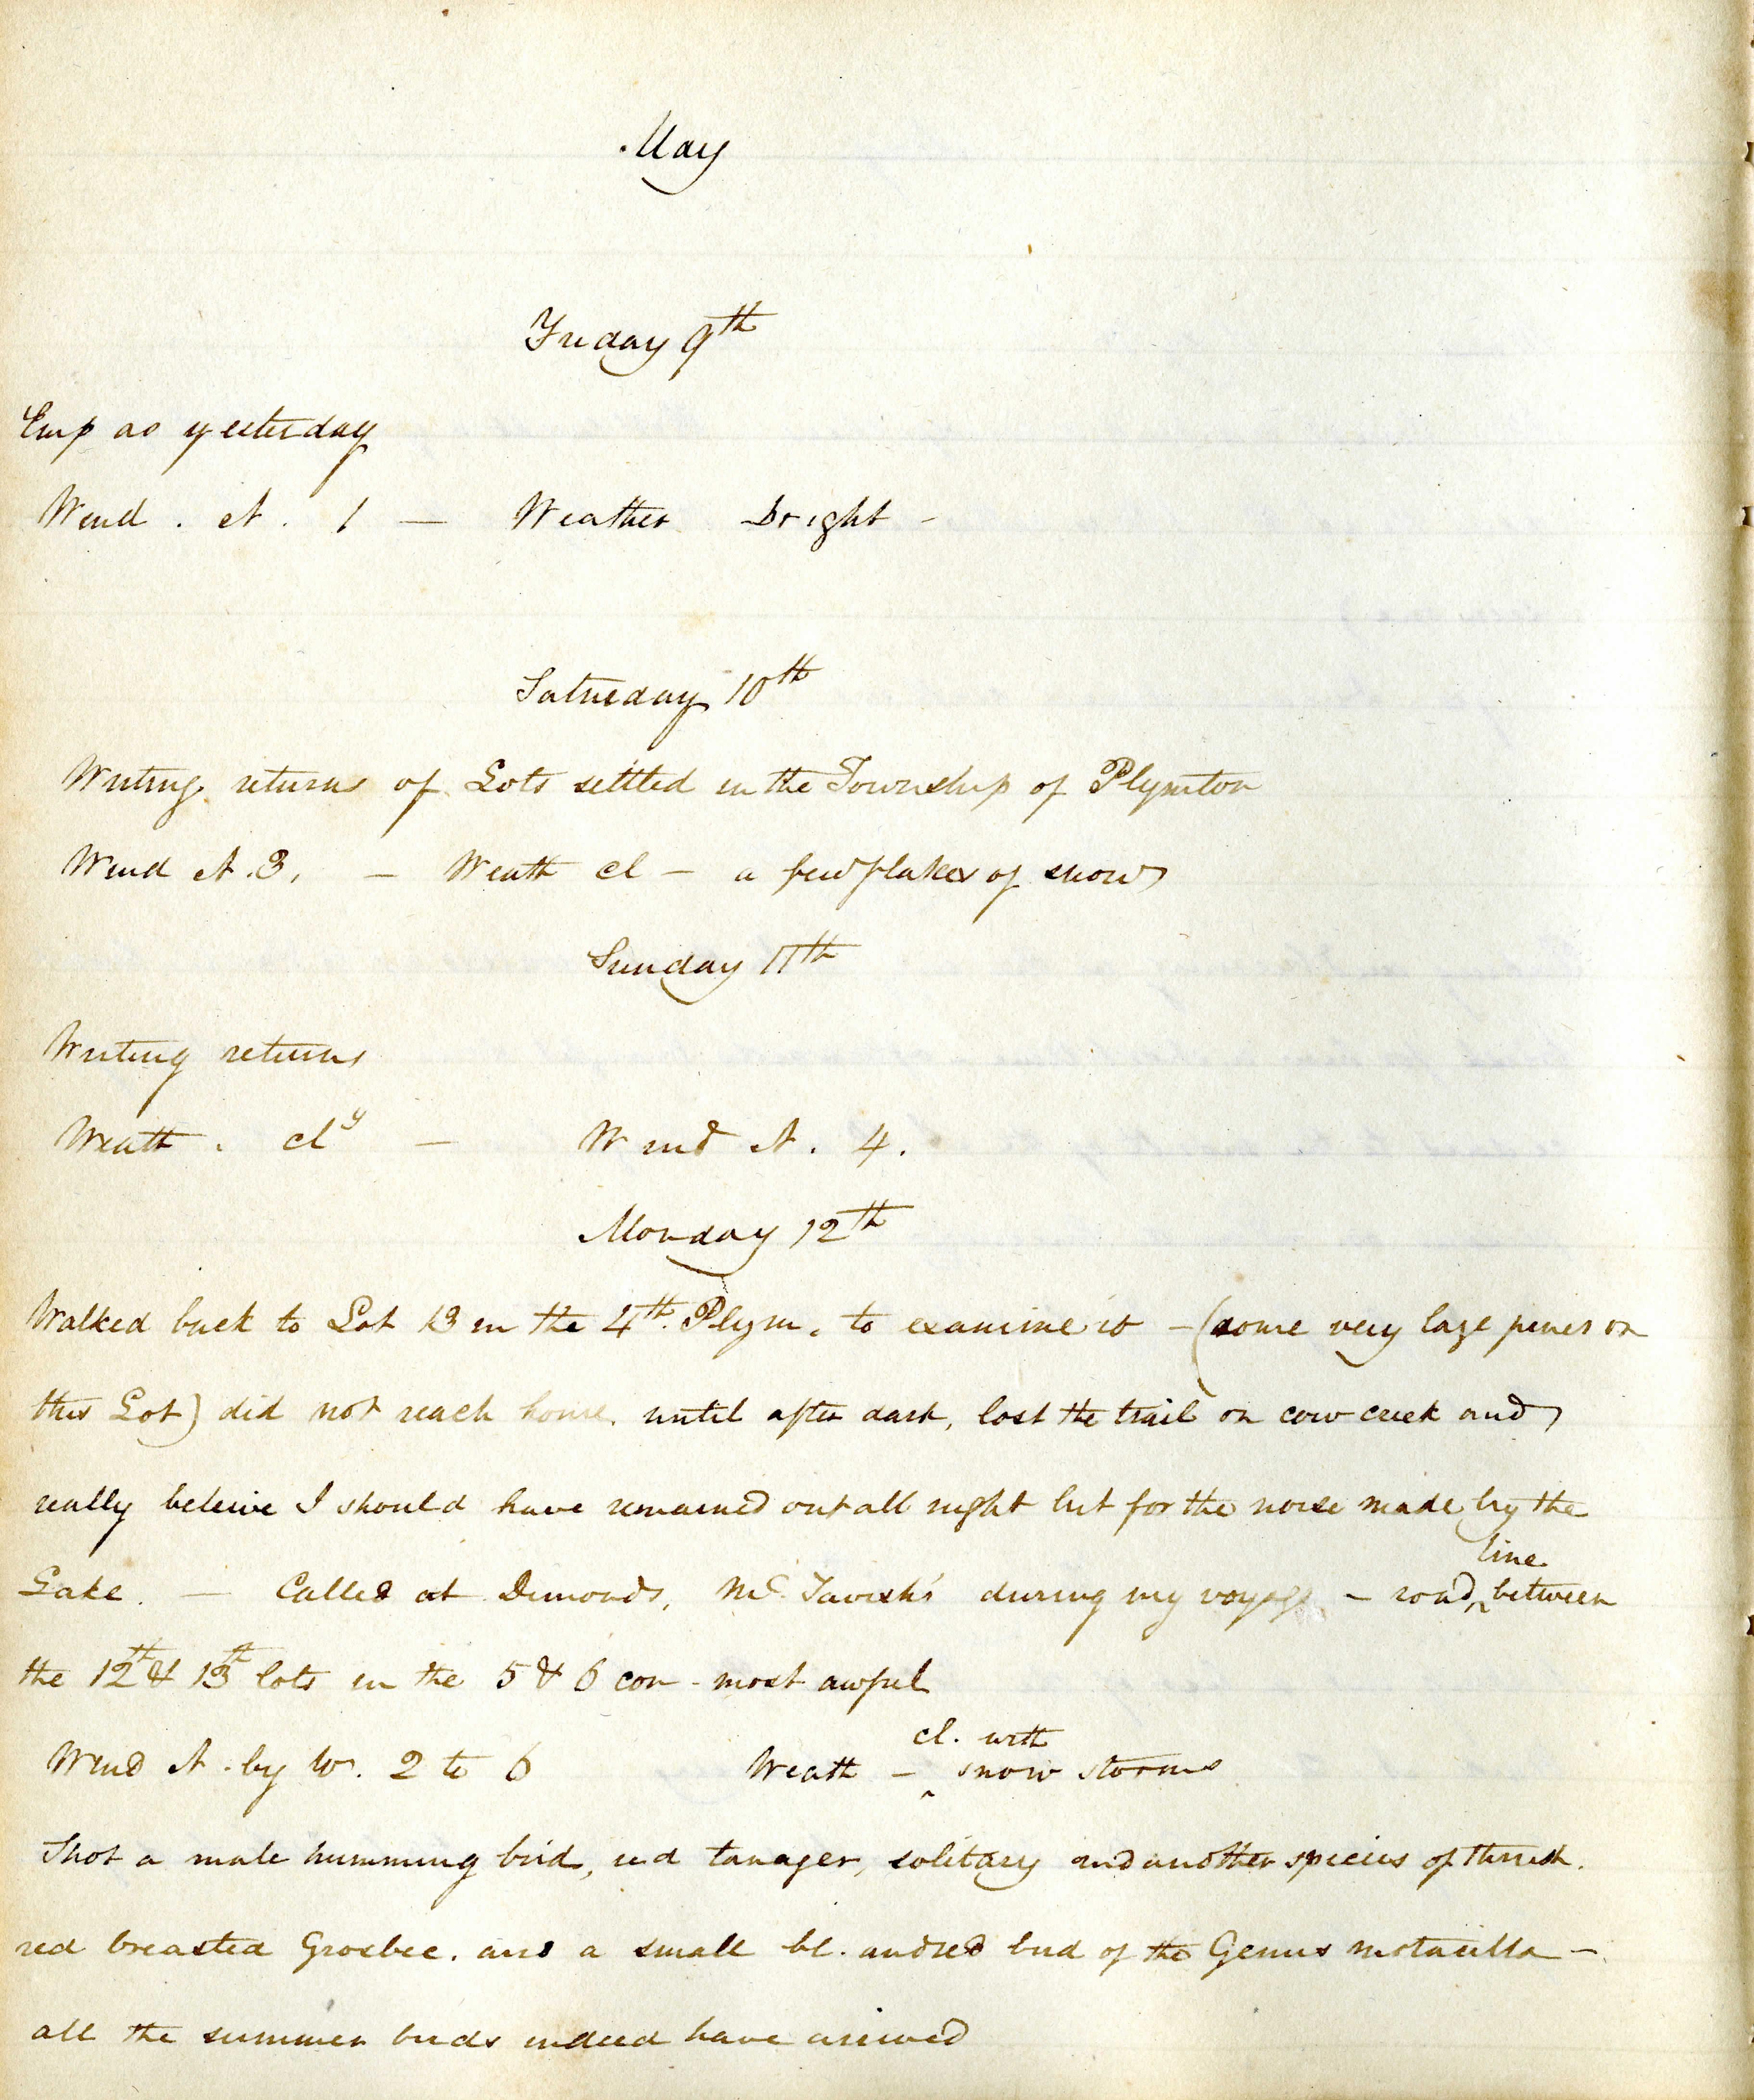 May
Friday 9th
Emp as yesterday
Wind . N . 1 — Weather bright -
Saturday 10th
Writing returns of Lots settled in the Township of Plymton
Wind N. 3. — Weath cl — a few flakes of snow
Sunday 11th
Writing returns
Weath . cly — Wind N . 4 .
Monday 12th
Walked back to Lot 13 in the 4th. Plym. to examine it — (some very large pines on
this Lot) did not reach home. until after dark, lost the trail on cow creek and
really beleive I should have remained out all night but for the noise made by the
line
Lake. — Called at Dimonds, Mc Tavish's during my voyage — road ^ between
the 12th & 13th lots in the 5 & 6 con - most awful
cl. with
Wind N. by W. 2 to 6 Weath — ^ snow storms
Shot a male humming bird, red tanager, solitary and another species of thrush.
red breasted Grosbec. and a small bl. and red bird of the Genus motacilla —
all the summer birds indeed have arrived